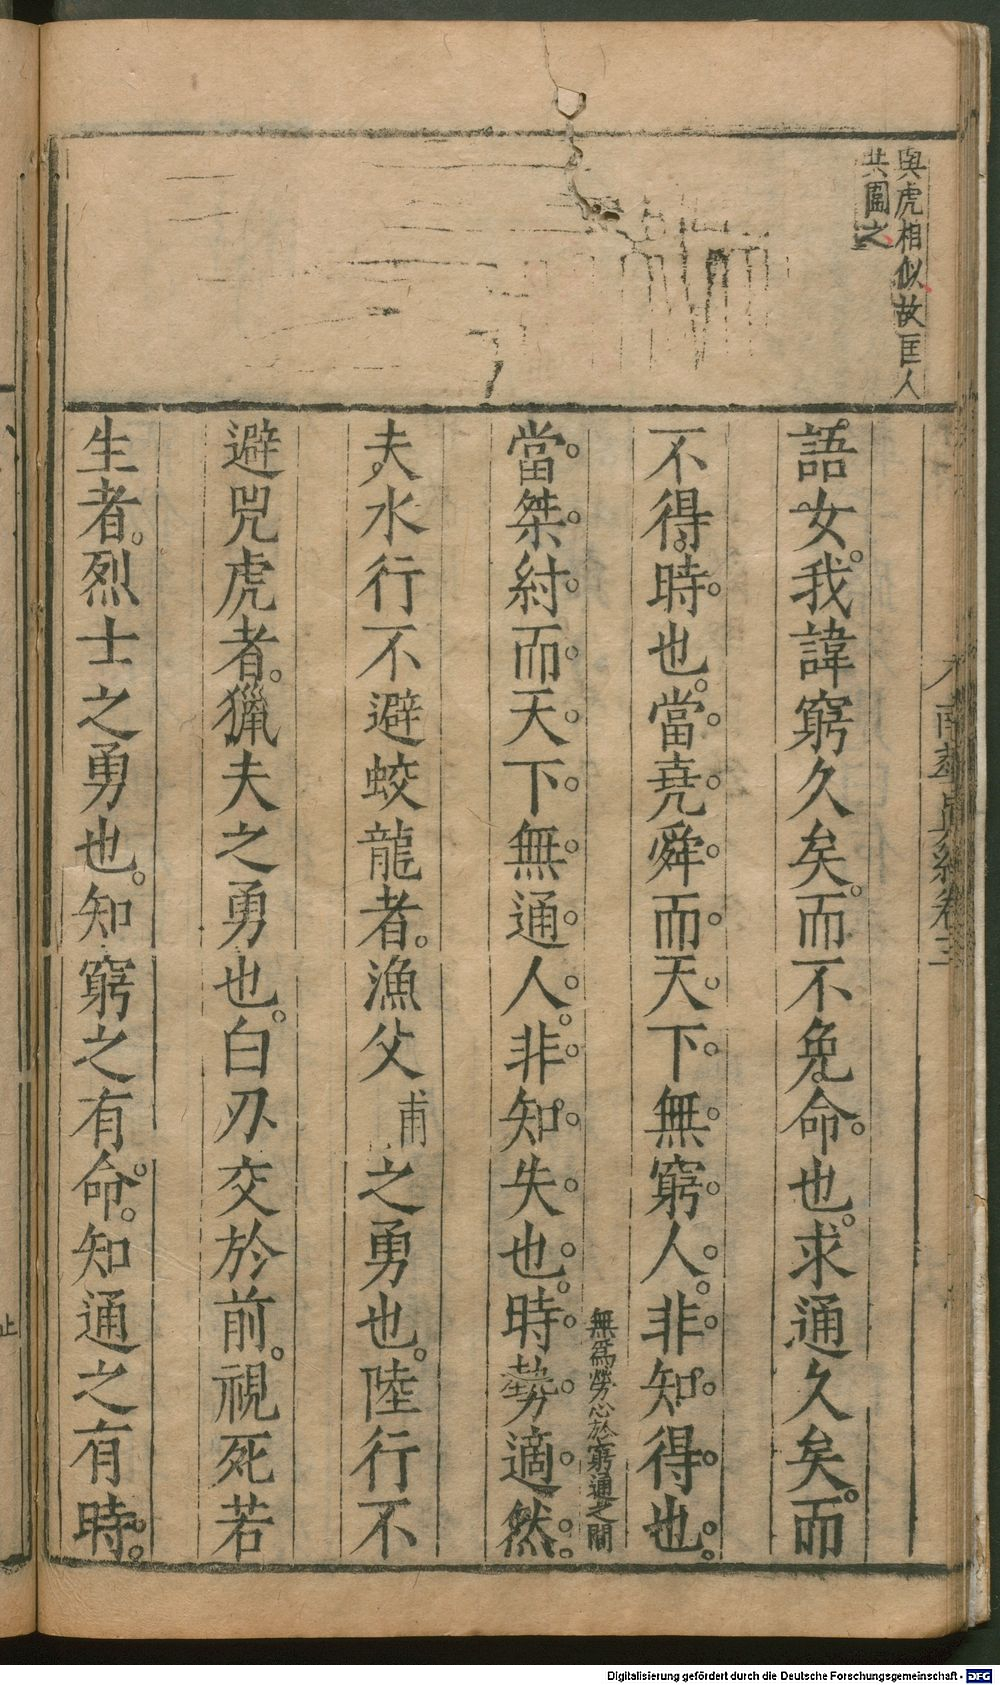 與虎相似故匡人
共圍之
南華真經卷三
語女。我諱窮久矣。而不免。命也。求通久矣。而
不得。時也。當堯舜而天下無窮人。非知得也。
無爲勞心於窮通之間
當桀紂而天下無通人。非知失也。時勢適然。
夫水行不避蛟龍者。漁父甫之勇也。陸行不
避兕虎者。獵夫之勇也。白刃交於前。視死若
生者。烈士之勇也。知窮之有命。知通之有時。
止
Digitalisierung gefördert durch die Deutsche Forschungsgemeinschaft - DFG